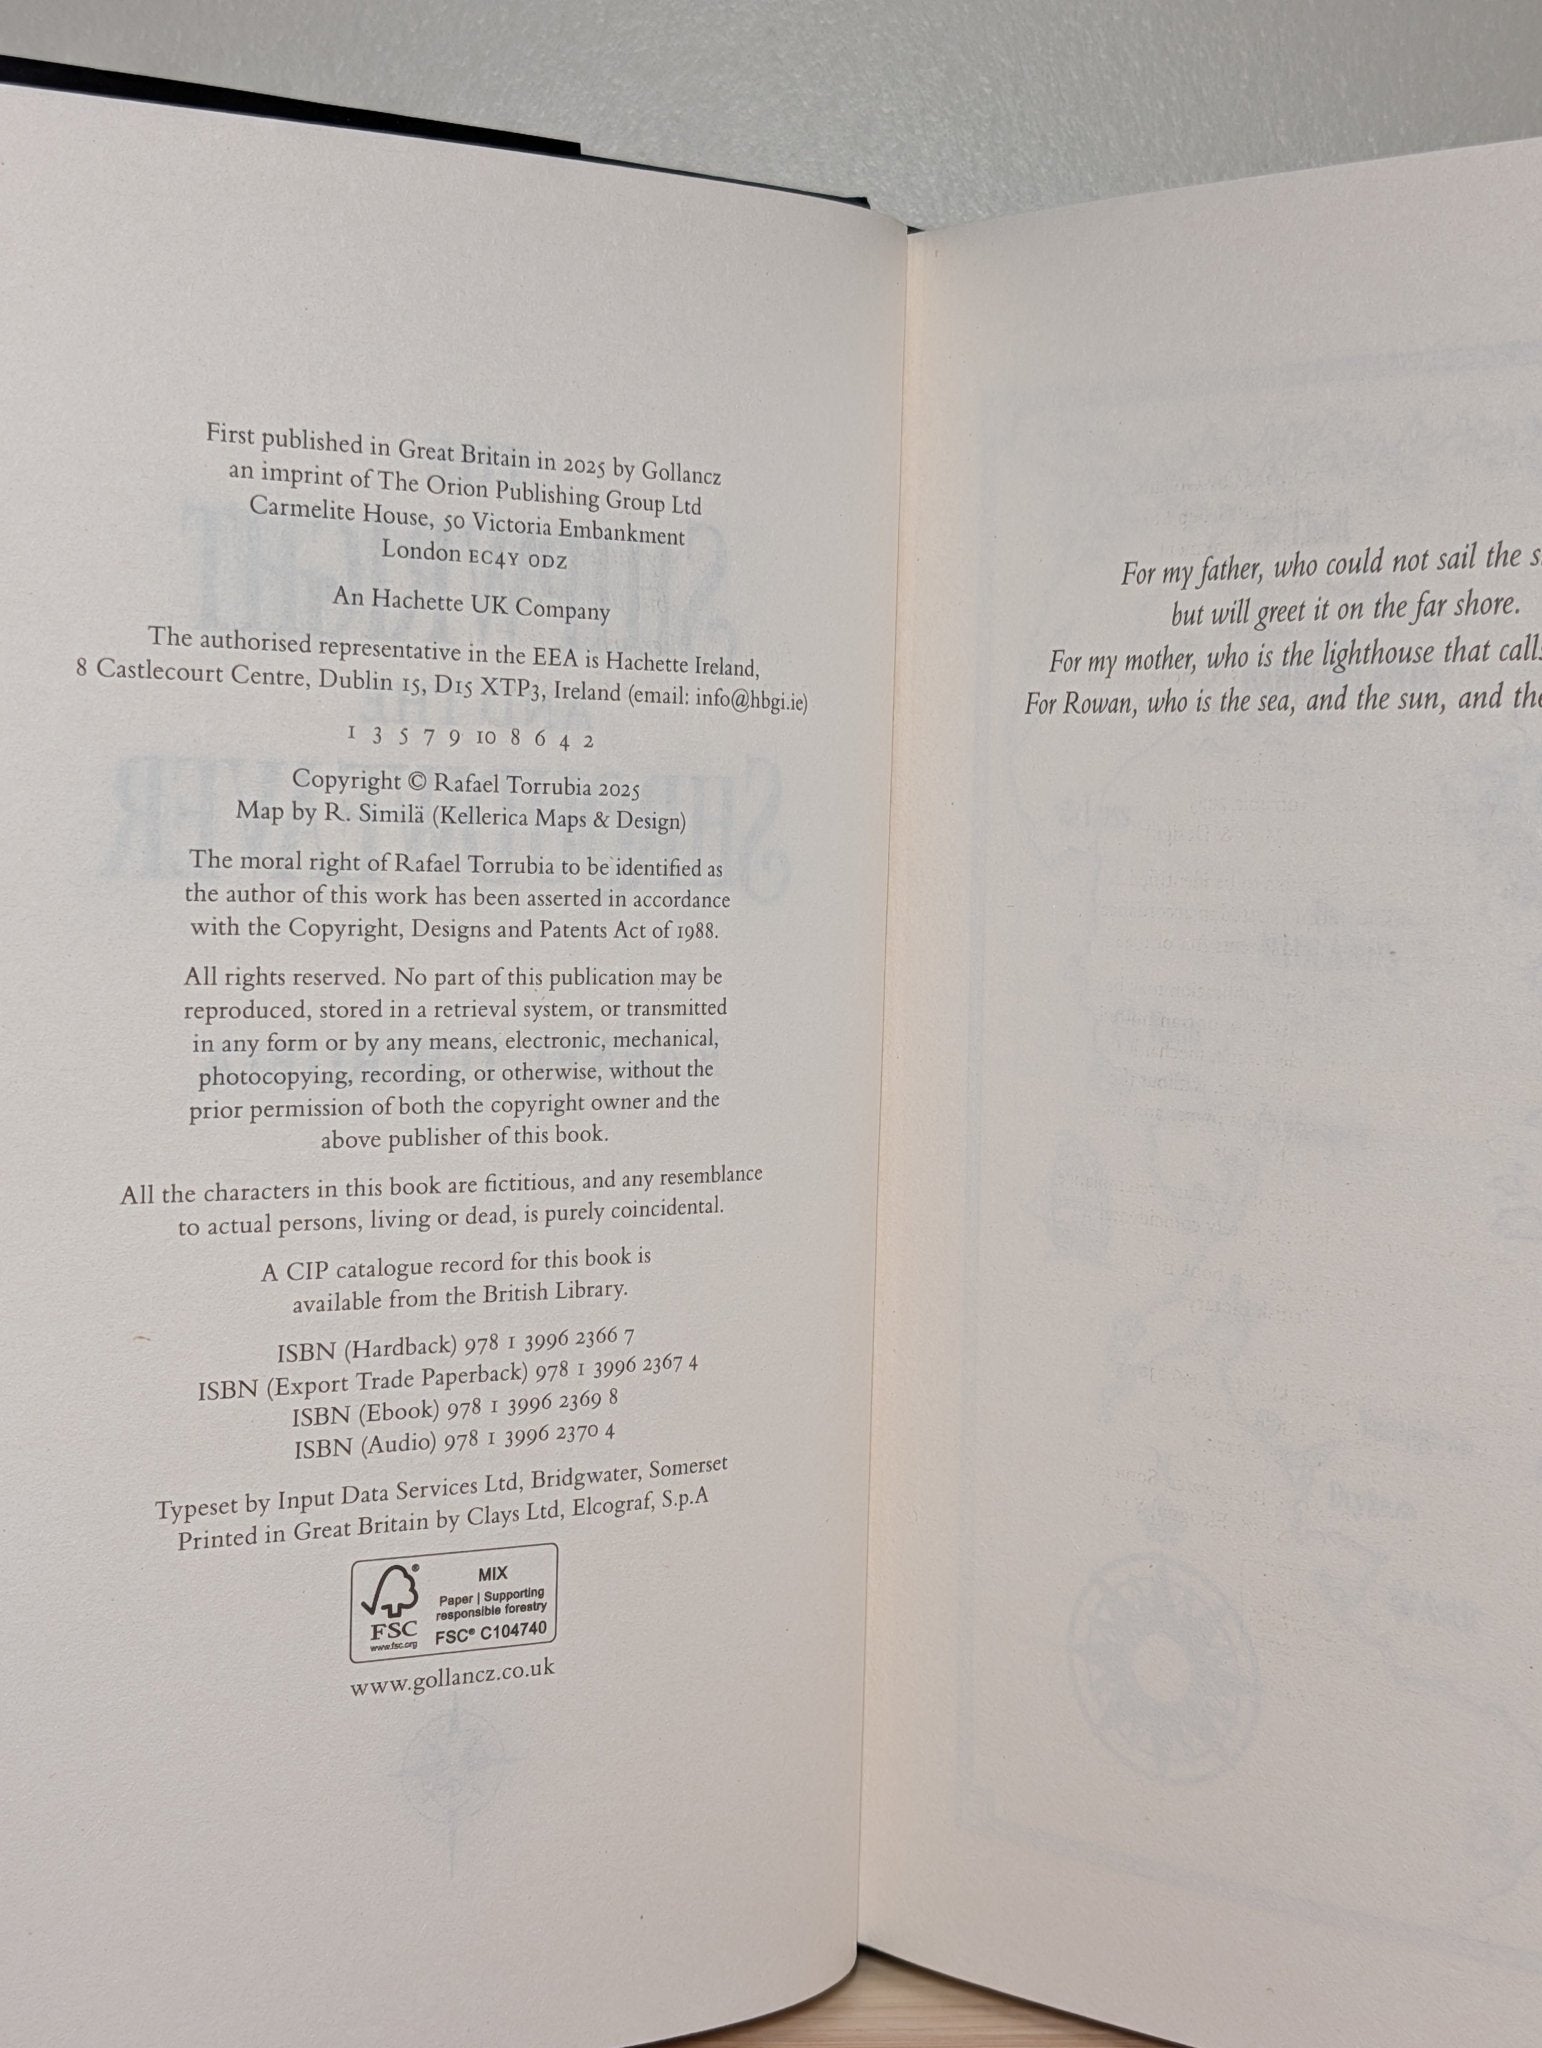 First published in Great Britain in 2025 by Gollancz
an imprint of The Orion Publishing Group Ltd
Carmelite House, 50 Victoria Embankment
London EC4Y 0DZ
An Hachette UK Company
The authorised representative in the EEA is Hachette Ireland,
8 Castlecourt Centre, Dublin 15, D15 XTP3, Ireland (email: info@hbgi.ie)
1 3 5 7 9 10 8 6 4 2
Copyright © Rafael Torrubia 2025
Map by R. Similä (Kellerica Maps & Design)
The moral right of Rafael Torrubia to be identified as
the author of this work has been asserted in accordance
with the Copyright, Designs and Patents Act of 1988.
All rights reserved. No part of this publication may be
reproduced, stored in a retrieval system, or transmitted
in any form or by any means, electronic, mechanical,
photocopying, recording, or otherwise, without the
prior permission of both the copyright owner and the
above publisher of this book.
All the characters in this book are fictitious, and any resemblance
to actual persons, living or dead, is purely coincidental.
A CIP catalogue record for this book is
available from the British Library.
ISBN (Hardback) 978 1 3996 2366 7
ISBN (Export Trade Paperback) 978 1 3996 2367 4
ISBN (Ebook) 978 1 3996 2369 8
ISBN (Audio) 978 1 3996 2370 4
Typeset by Input Data Services Ltd, Bridgwater, Somerset
Printed in Great Britain by Clays Ltd, Elcograf, S.p.A
MIX
Paper | Supporting
responsible forestry
FSC® C104740
FSC
www.fsc.org
www.gollancz.co.uk
For my father, who could not sail the
but will greet it on the far shore.
For my mother, who is the lighthouse that
For Rowan, who is the sea, and the sun, and